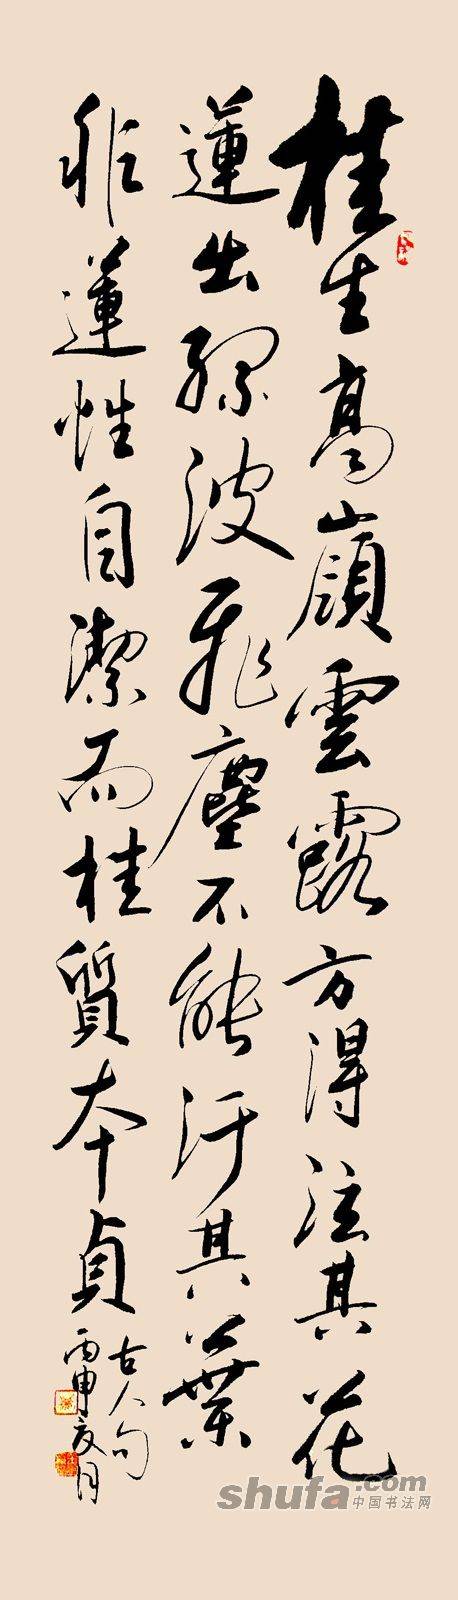 桂生高嶺雲露方得泫其花
蓮出綠波飛塵不能汙其葉
非蓮性自潔而桂質本貞
古人句
丙申夏月
shufa.com
中国书法网